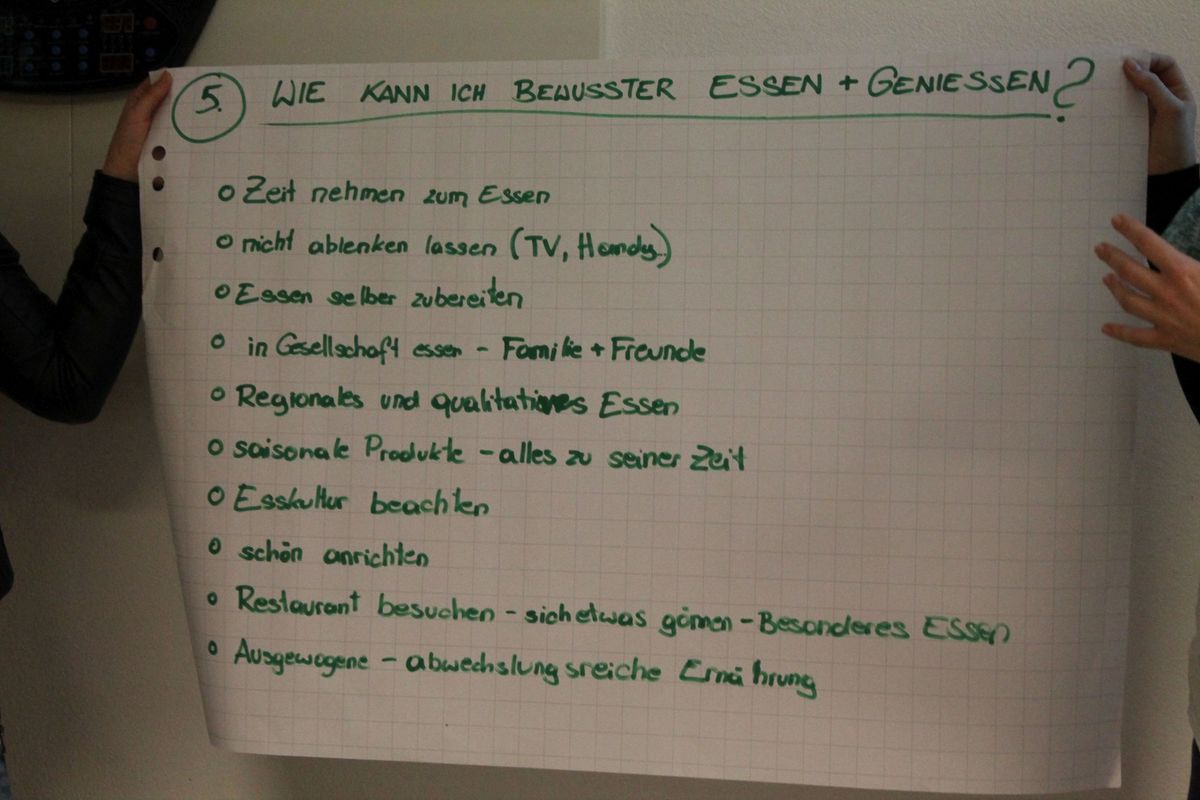 5. WIE KANN ICH BEWUSSTER ESSEN + GENIESSEN?
o Zeit nehmen zum Essen
o nicht ablenken lassen (TV, Handy..)
o Essen selber zubereiten
o in Gesellschaft essen - Familie + Freunde
o Regionales und qualitatives Essen
o saisonale Produkte - alles zu seiner Zeit
o Esskultur beachten
o schön anrichten
o Restaurant besuchen - sich etwas gönnen - Besonderes Essen
o Ausgewogene - abwechslungsreiche Ernährung